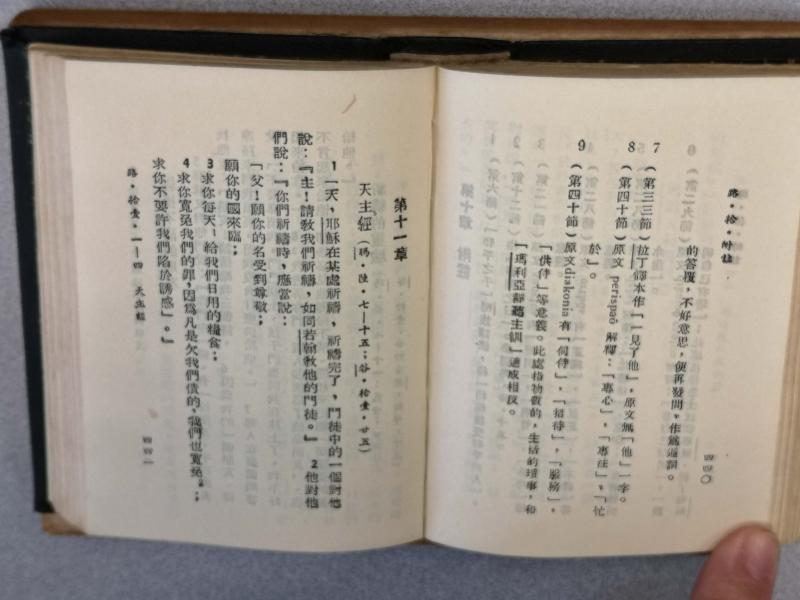 路・拾・附註
的答覆，不好意思，便再發問，作爲遁詞。
四四〇
7（第三三節）拉丁譯本作「一見了他」，原文無「他」一字。
8（第四十節）原文 perispaō 解釋：「專心」，「專注」，「忙
於」。
9（第四十節）原文 diakonia 有「伺侍」，「招待」，「服務」，
「供侍」等意義。此處指物質的，生活的瑣事，和
「瑪利亞靜聽主訓」適成相反。
第十一章
天主經（瑪・陸・七—十五；谷・拾壹・廿五）
1一天，耶穌在某處祈禱，祈禱完了，門徒中的一個對他
說：『主！請敎我們祈禱，如同若翰敎他的門徒。』2他對他
們說：『你們祈禱時，應當說：
「父！願你的名受到尊敬；
願你的國來臨；
3求你每天，給我們日用的糧食；
4求你寬免我們的罪，因爲凡是欠我們債的，我們也寬免。；
求你不要許我們陷於誘感」。』
路・拾壹・一—四 天主經
四四一